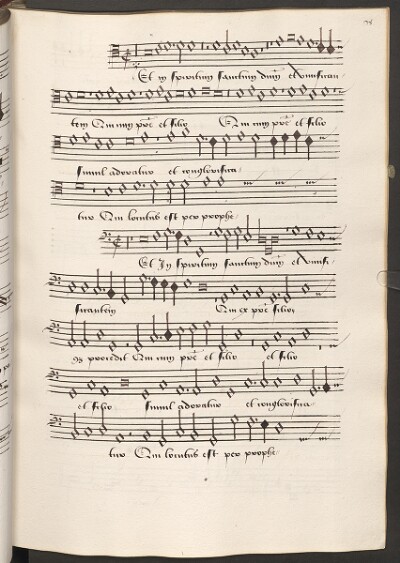 Et in spiritum sanctum dnm et vivifican
tem Qui cum pre et filio Qui cum pre et filio
simul adoratur et conglorifica
tur Qui locutus est per prophe
Et In spiritum sanctum dnm et vivifi
ficantem Qui ex pre filioq
procedit Qui cum pre et filio et filio
et filio simul adoratur et conglorifica
tur Qui locutus est per prophe